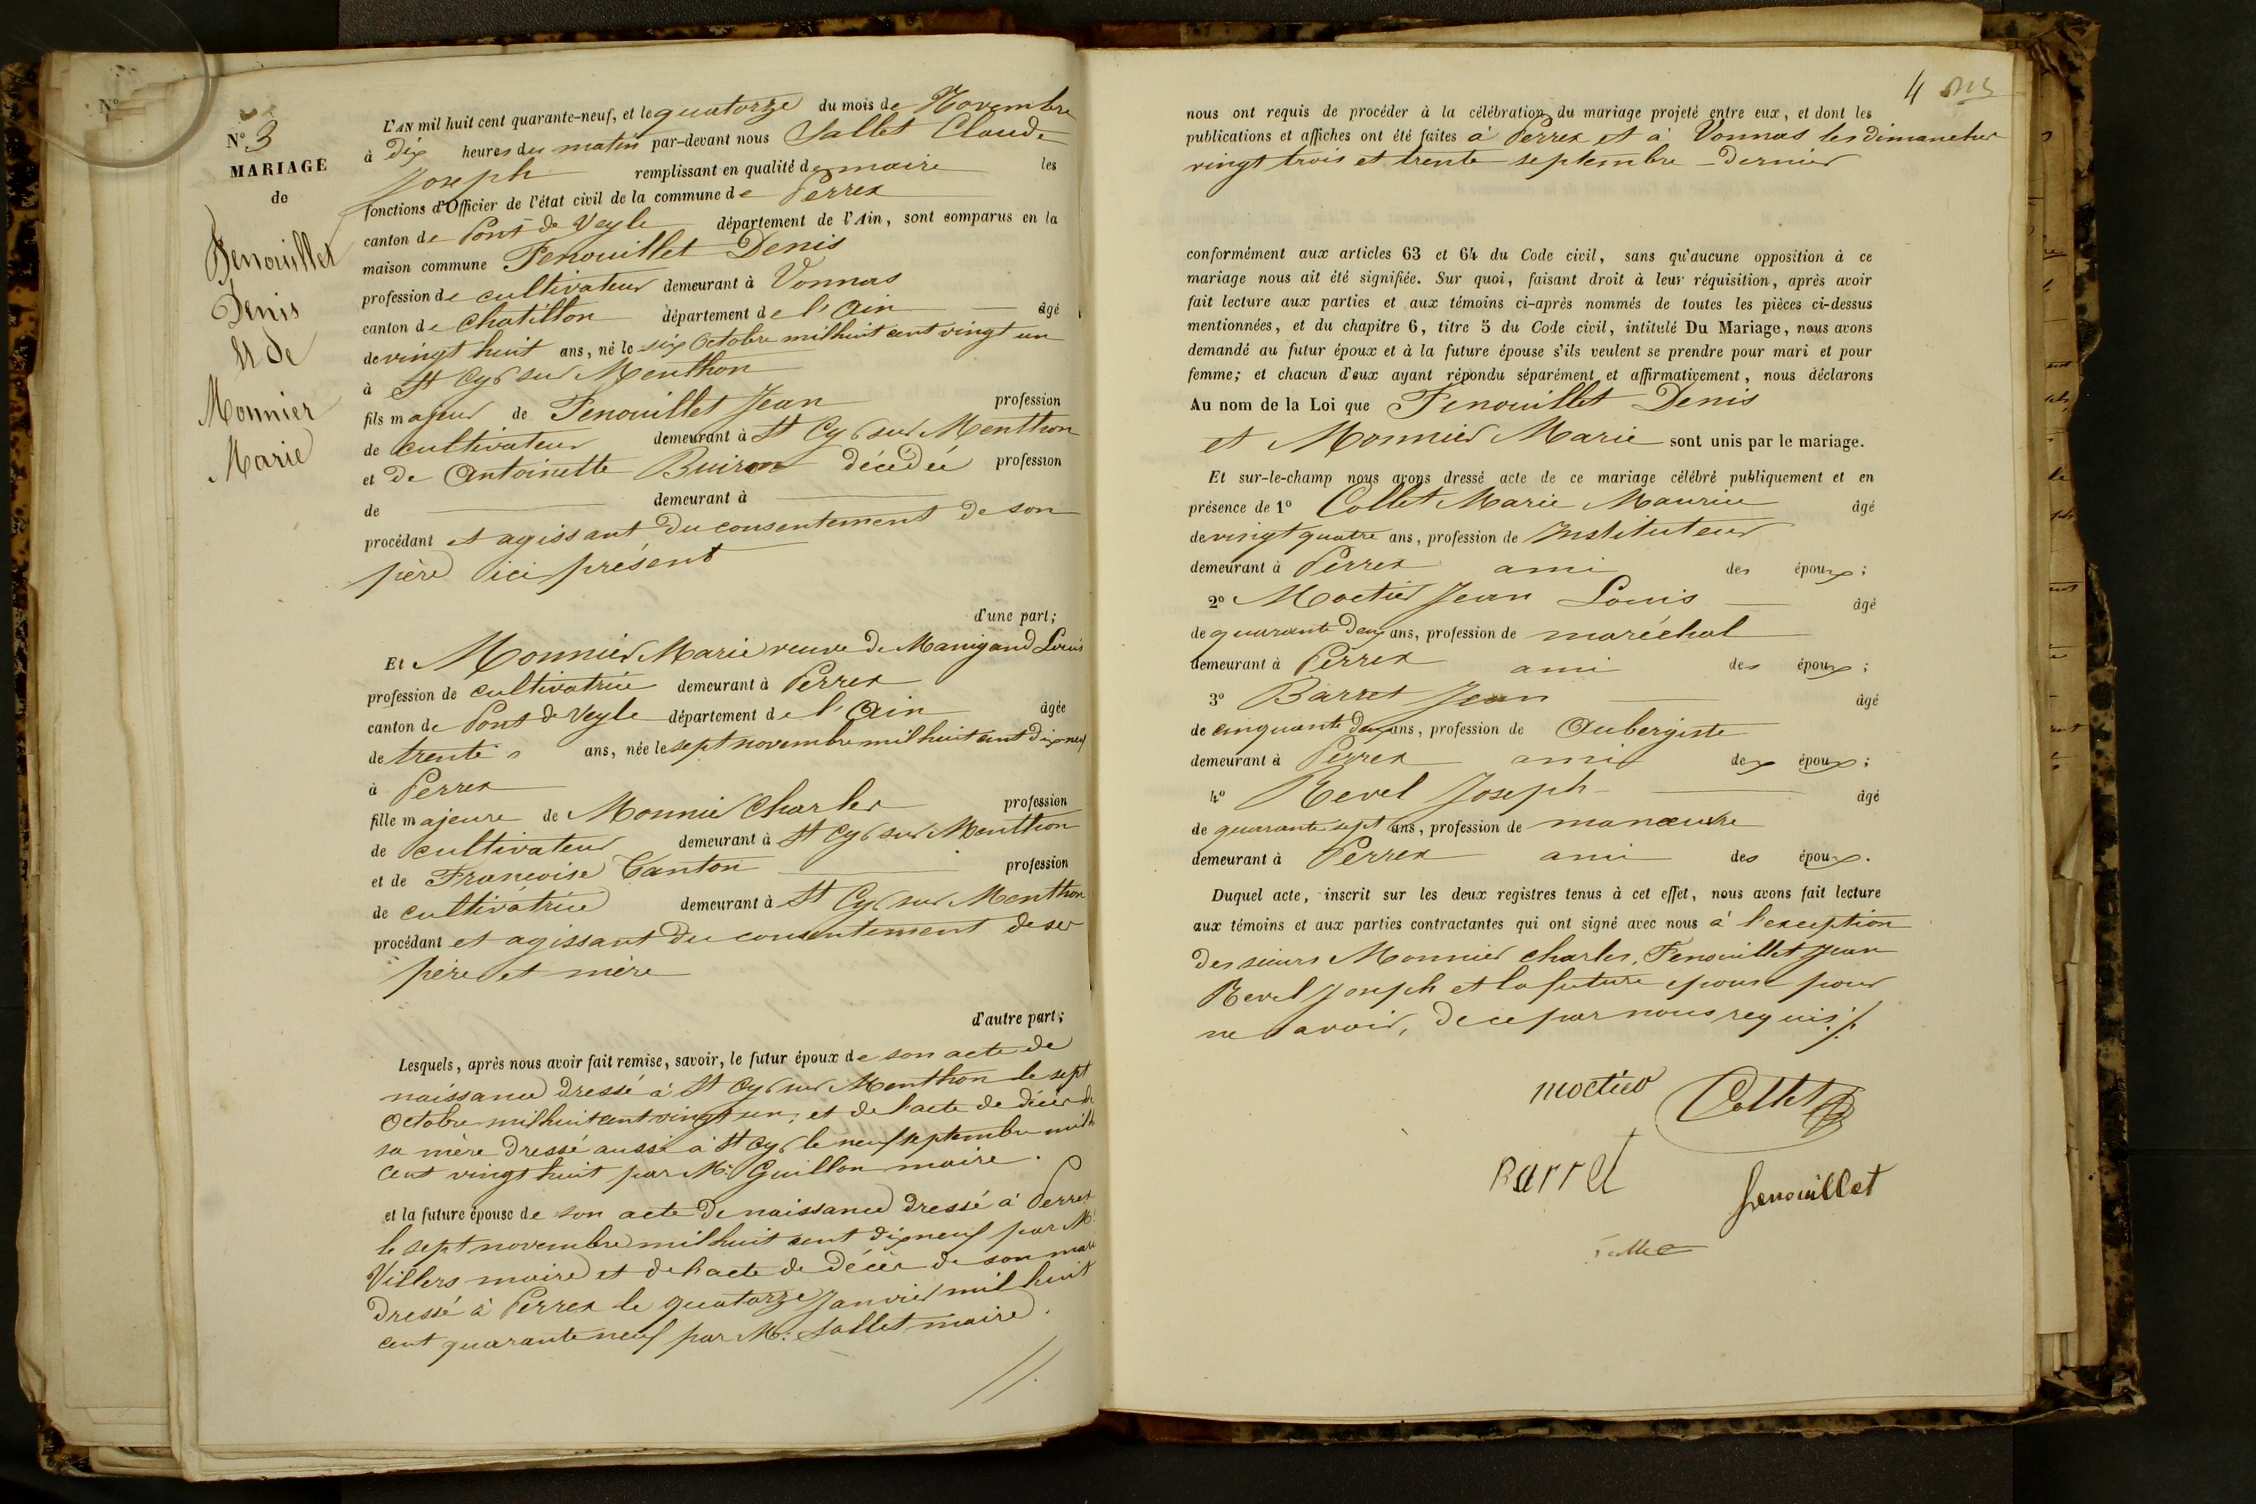 N°
N° 3
MARIAGE
de
Fenouillet
Denis
et de
Monnier
Marie
L'AN mil huit cent quarante-neuf, et le quatorze du mois de Novembre
à dix heures du matin par-devant nous Sallet Claude
Joseph remplissant en qualité de maire les
fonctions d'Officier de l'état civil de la commune de Perrex
canton de Pont de Veyle département de l'Ain, sont comparus en la
maison commune Fenouillet Denis
profession de cultivateur demeurant à Vonnas
canton de Chatillon département de l'Ain âgé
de vingt huit ans, né le six Octobre mil huit cent vingt un
à St Cyr sur Menthon
fils majeur de Fenouillet Jean profession
de cultivateur demeurant à St Cyr sur Menthon
et de Antoinette Buiron décédée profession
de demeurant à
procédant et agissant du consentement de son
père ici présent
d'une part;
Et Monnier Marie veuve de Manigand Louis
profession de cultivatrice demeurant à Perrex
canton de Pont de Veyle département de l'Ain âgée
de trente ans, née le sept novembre mil huit cent dix neuf
à Perrex
fille majeure de Monnier Charles profession
de cultivateur demeurant à St Cyr sur Menthon
et de Francoise Canton profession
de cultivatrice demeurant à St Cyr sur Menthon
procédant et agissant du consentement de ses
père et mère
d'autre part;
Lesquels, après nous avoir fait remise, savoir, le futur époux de son acte de
naissance dressé à St Cyr sur Menthon le sept
Octobre mil huit cent vingt un, et de l'acte de décès de
sa mère dressé aussi à St Cyr le neuf septembre mil h
cent vingt huit par Mr Guillon maire.
et la future épouse de son acte de naissance dressé à Perrex
le sept novembre mil huit cent dix neuf par Mr
Villers maire et de l'acte de décès de son mari
dressé à Perrex le quatorze Janvier mil huit
cent quarante neuf par Mr. Sallet maire.
4
nous ont requis de procéder à la célébration du mariage projeté entre eux, et dont les
publications et affiches ont été faites à Perrex et à Vonnas les dimanches
vingt trois et trente septembre dernier
conformément aux articles 63 et 64 du Code civil, sans qu'aucune opposition à ce
mariage nous ait été signifiée. Sur quoi, faisant droit à leur réquisition, après avoir
fait lecture aux parties et aux témoins ci-après nommés de toutes les pièces ci-dessus
mentionnées, et du chapitre 6, titre 5 du Code civil, intitulé Du Mariage, nous avons
demandé au futur époux et à la future épouse s'ils veulent se prendre pour mari et pour
femme; et chacun d'eux ayant répondu séparément et affirmativement, nous déclarons
Au nom de la Loi que Fenouillet Denis
et Monnier Marie sont unis par le mariage.
Et sur-le-champ nous avons dressé acte de ce mariage célébré publiquement et en
présence de 1° Collet Marie Maurice âgé
de vingt quatre ans, profession de Instituteur
demeurant à Perrex ami des époux;
2° Moctier Jean Louis âgé
de quarante deux ans, profession de maréchal
demeurant à Perrex ami des époux;
3° Barret Jean âgé
de cinquante deux ans, profession de Aubergiste
demeurant à Perrex ami des époux;
4° Revel Joseph âgé
de quarante sept ans, profession de manœuvre
demeurant à Perrex ami des époux.
Duquel acte, inscrit sur les deux registres tenus à cet effet, nous avons fait lecture
aux témoins et aux parties contractantes qui ont signé avec nous à l'exception
des sieurs Monnier Charles, Fenouillet Jean
Revel Joseph et la future épouse pour
ne savoir, de ce par nous requis ./.
moctier Collet
Barret
fenouillet
Sallet